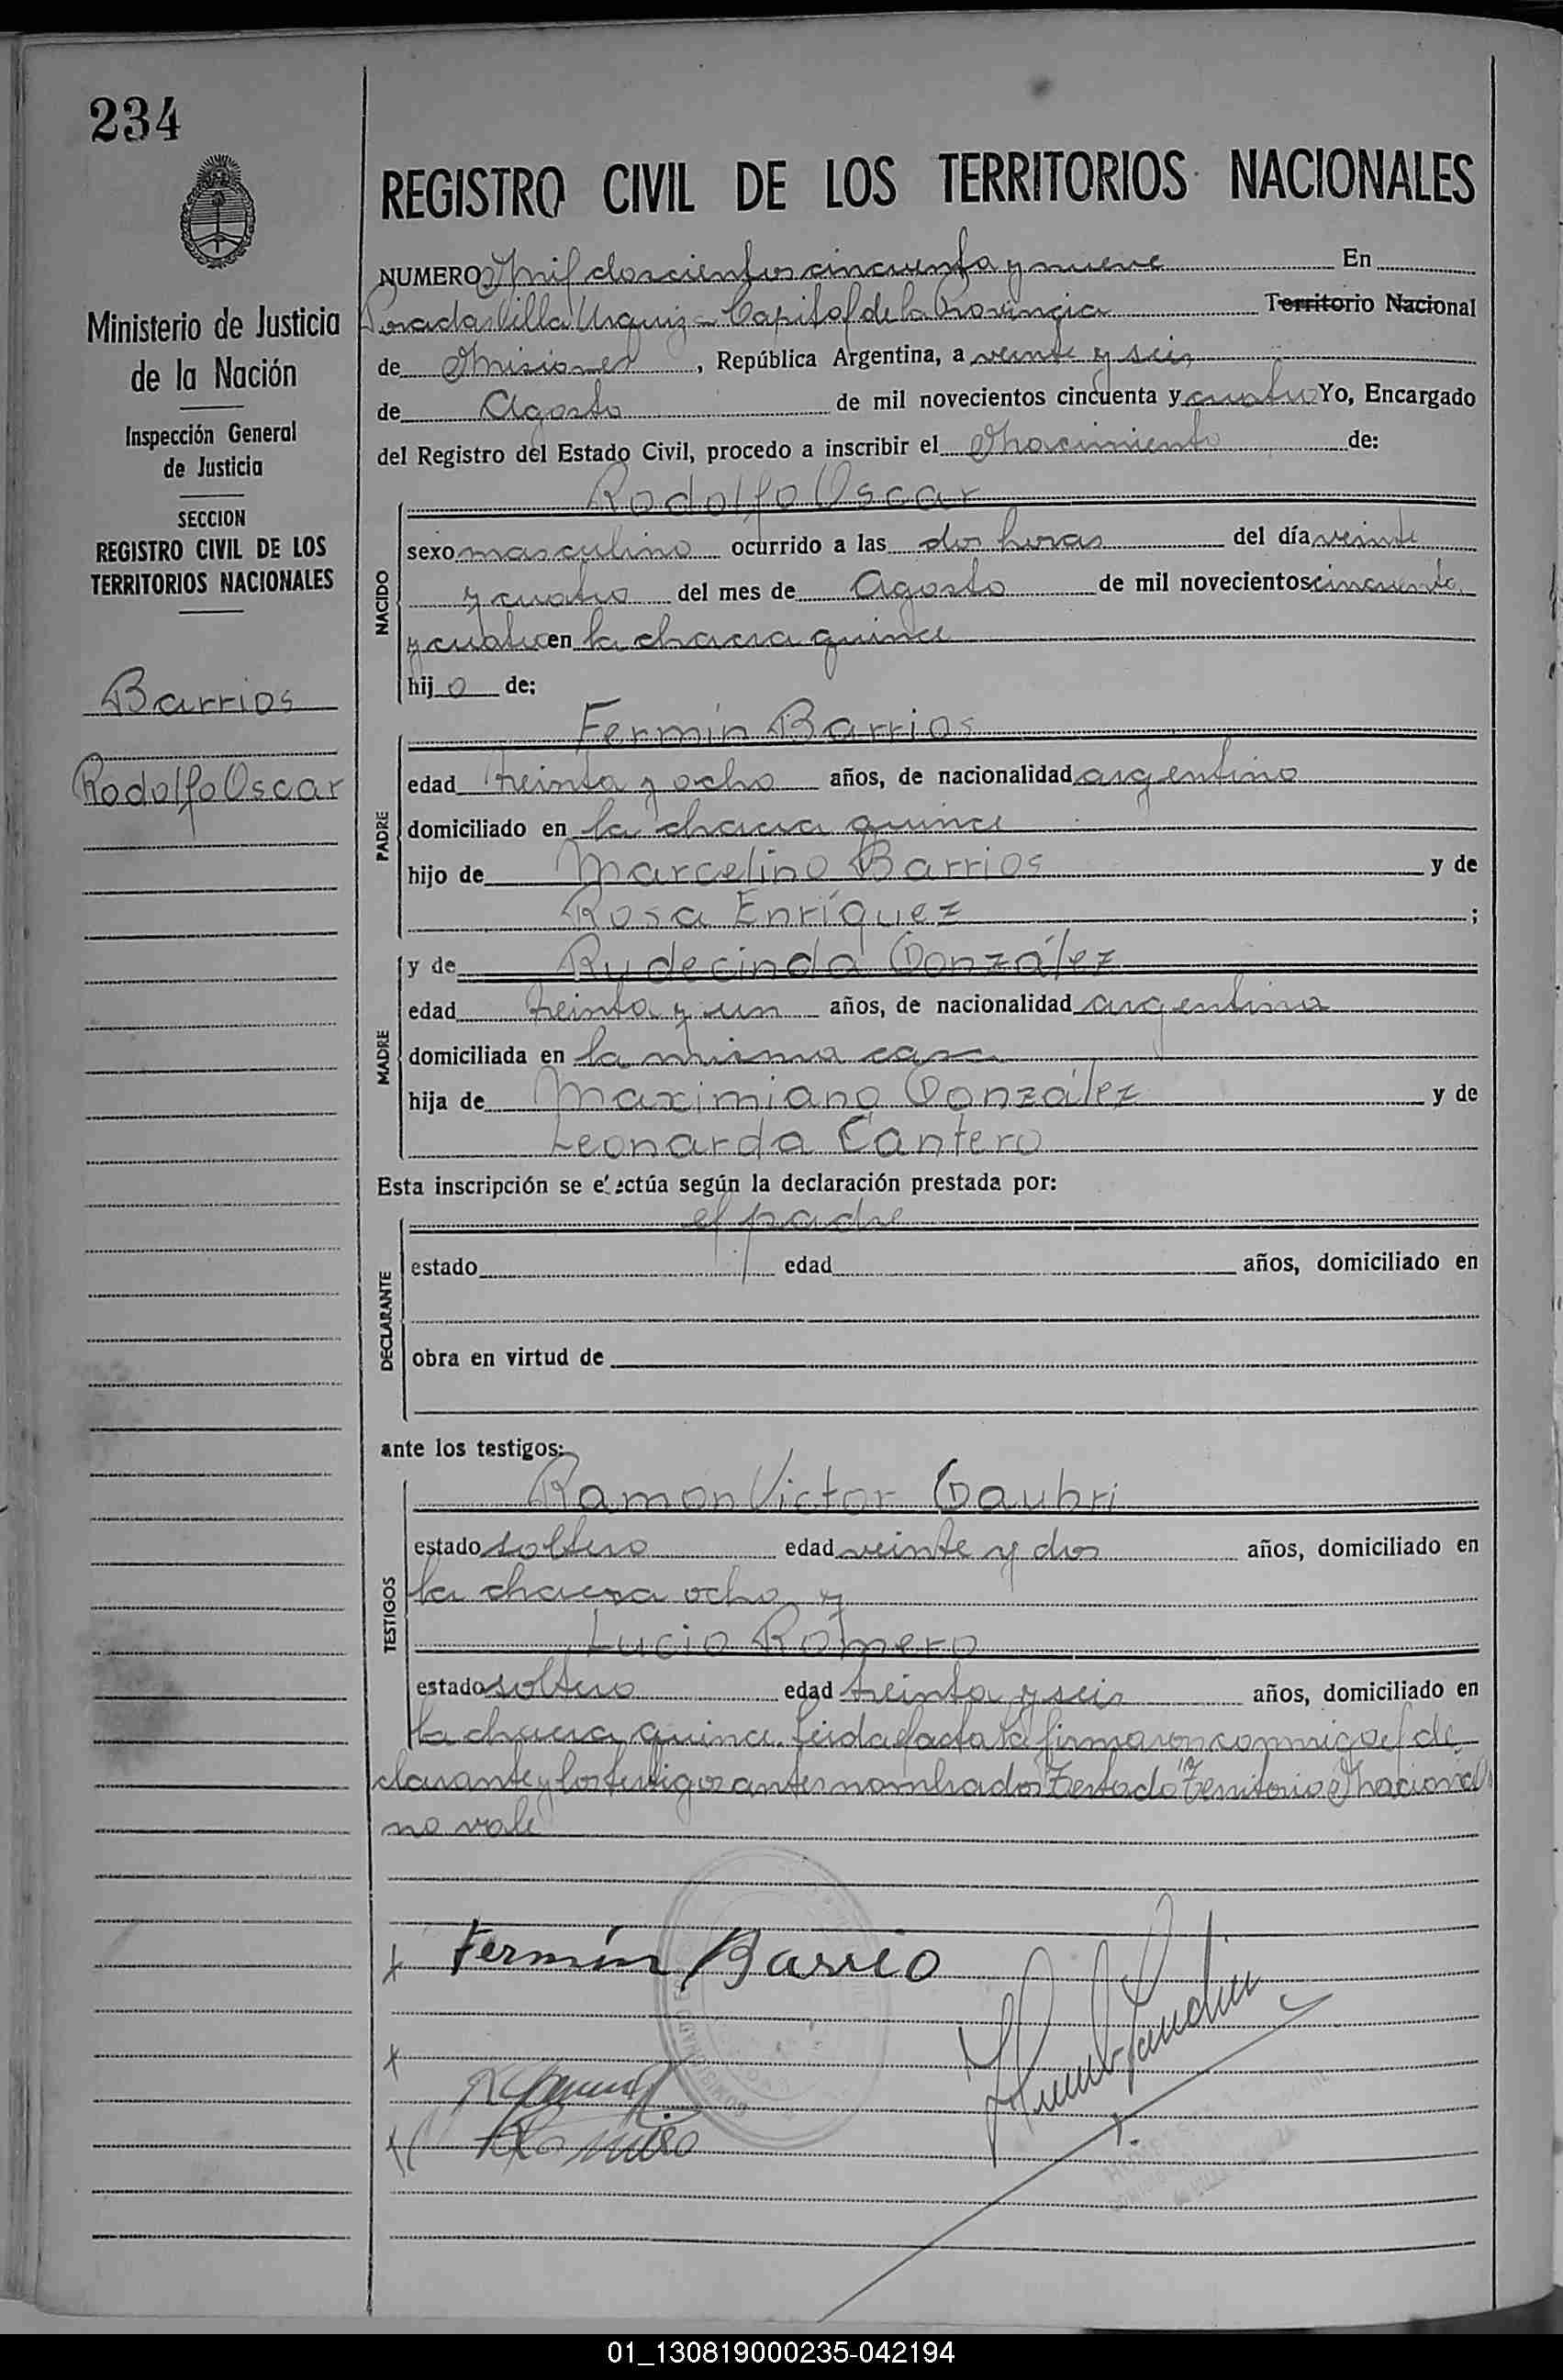 234
Ministerio de Justicia
de la Nación
Inspección General
de Justicia
SECCION
REGISTRO CIVIL DE LOS
TERRITORIOS NACIONALES
Barrios
Rodolfo Oscar
REGISTRO CIVIL DE LOS TERRITORIOS NACIONALES
NUMERO Mil doscientos cincuenta y nueve En
Posadas Villa Urquiza Capital de la Provincia Territorio Nacional
de Misiones, República Argentina, a veinte y seis
de Agosto de mil novecientos cincuenta y cuatro Yo, Encargado
del Registro del Estado Civil, procedo a inscribir el Nacimiento de:
Rodolfo Oscar
NACIDO
sexo masculino ocurrido a las dos horas del día veinte
y cuatro del mes de Agosto de mil novecientos cincuenta
y cuatro en la chacra quince
hijo de:
Fermín Barrios
PADRE
edad treinta y ocho años, de nacionalidad argentino
domiciliado en la chacra quince
hijo de Marcelino Barrios y de
Rosa Enríquez ;
y de Rudecinda González
MADRE
edad treinta y un años, de nacionalidad argentina
domiciliada en la misma casa
hija de Maximiano González y de
Leonarda Cantero
Esta inscripción se efectúa según la declaración prestada por:
el padre
DECLARANTE
estado edad años, domiciliado en
obra en virtud de
ante los testigos:
Ramon Victor Daubri
TESTIGOS
estado soltero edad veinte y dos años, domiciliado en
la chacra ocho y
Lucio Romero
estado soltero edad treinta y seis años, domiciliado en
la chacra quince. Leida el acta la firmaron conmigo el de
clarante y los testigos antes nombrados Testado "Territorio Nacional
no vale
x Fermín Barrio
x
x Romero
01_130819000235-042194